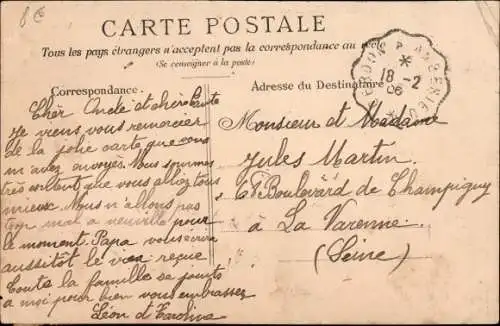 8€
CARTE POSTALE
Tous les pays étrangers n'acceptent pas la correspondance au recto
(Se renseigner à la poste)
18-2
06
Correspondance.
Adresse du Destinataire
Cher Oncle et chère Tante
Je viens vous remercier
de la jolie carte que vous
m'avez envoyée. Nous sommes
très content que vous alliez tous
mieux. Nous n'allons pas
trop mal a neuville pour
le moment. Papa vous écrira
aussitôt le vin reçue
Toute la famille se joints
a moi pour bien vous embrasser
Léon d'
Monsieur et Madame
Jules Martin.
68 Boulevard de Champigny
à La Varenne.
(Seine)